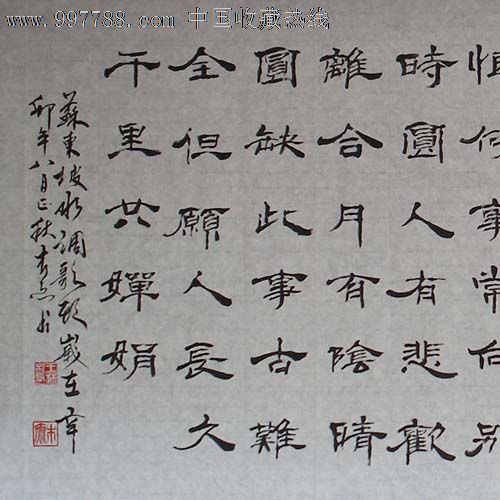 www.997788.com 中国收藏热线
恨何事常向别
時圓人有悲歡
離合月有陰晴
圓缺此事古難
全但願人長久
千里共嬋娟
蘇東坡水調歌頭歲在辛
卯年八月正秋